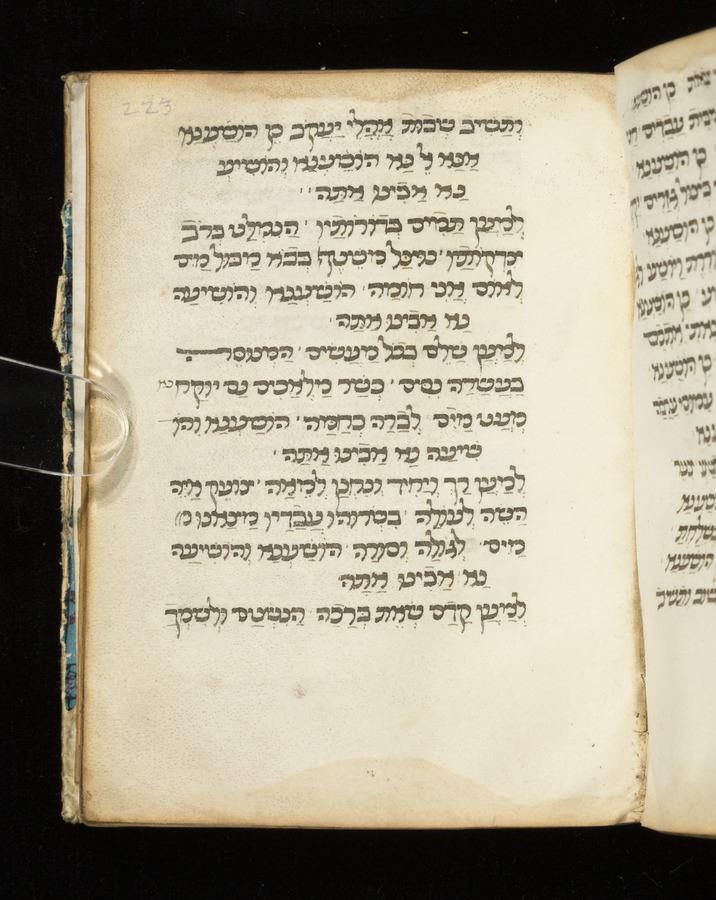 ותשיב שבות אהלי יעקב כן הושענא
אנא אל נא הושענא והושיע
נא אבינו אתה
למען תמים בדורותיו הנמלט ברב
צדקותיו מוצל משטף בבא מבול מים
לאום אני חומה הושענא והושיעה
נא אבינו אתה
למען שלם בכל מעשים המנוסה
בעשרה נסים כשר מלאכים נם יוקח נא
מעט מים לברה כחמה הושענא והו
שיעה נא אבינו אתה
למען רך ויחיד למאה זעק איה
השה לעולה בשרוהו עבדיו מצאנו מ
מים לגולה וסורה הושענא והושיעה
נא אבינו אתה
למען קדם שאת ברכה הנשטם ולשמך
223